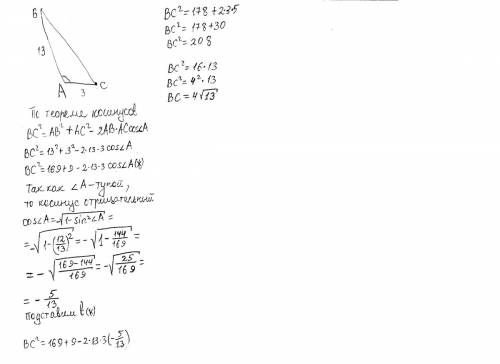 Б
13
A
3
C
По теореме косинусов
BC² = AB² + AC² - 2AB·AC cos∠A
BC² = 13² + 3² - 2·13·3 cos∠A
BC² = 169 + 9 - 2·13·3 cos∠A (*)
Так как ∠A - тупой,
то косинус отрицательный
cos∠A = -√(1 - sin²∠A) =
= -√(1 - (12/13)²) = -√(1 - 144/169) =
= -√((169 - 144)/169) = -√(25/169) =
= - 5/13
подставим в (*)
BC² = 169 + 9 - 2·13·3 (-5/13)
BC² = 178 + 2·3·5
BC² = 178 + 30
BC² = 208
BC² = 16·13
BC² = 4²·13
BC = 4√13